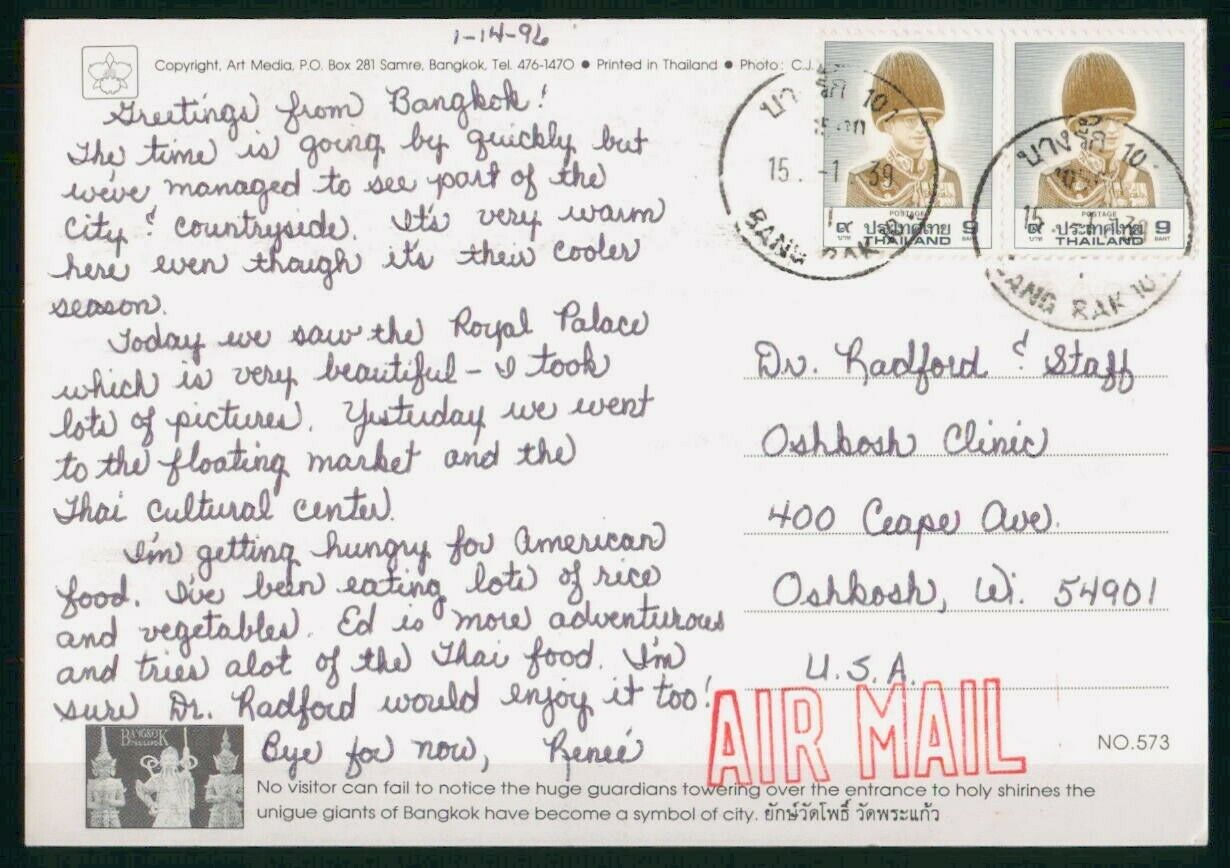 1-14-96
Copyright, Art Media, P.O. Box 281 Samre, Bangkok, Tel. 476-1470 ● Printed in Thailand ● Photo: C.J.
Greetings from Bangkok!
The time is going by quickly but
we've managed to see part of the
City & Countryside. It's very warm
here even though it's their cooler
season.
Today we saw the Royal Palace
which is very beautiful - I took
lots of pictures. Yesterday we went
to the floating market and the
Thai cultural center.
I'm getting hungry for American
food. I've been eating lots of rice
and vegetables. Ed is more adventurous
and tries alot of the Thai food. I'm
sure Dr. Radford would enjoy it too!
Bye for now, Reneé
บางรัก 10
15 -1 39
BANG RAK
POSTAGE
๙ ประเทศไทย 9
บาท THAILAND BAHT
บางรัก 10
15
BANG RAK 10
POSTAGE
๙ ประเทศไทย 9
บาท THAILAND BAHT
Dr. Radford & Staff
Oshkosh Clinic
400 Ceape Ave.
Oshkosh, Wi. 54901
U.S.A.
AIR MAIL
NO.573
BANGKOK
THAILAND
No visitor can fail to notice the huge guardians towering over the entrance to holy shirines the
unigue giants of Bangkok have become a symbol of city. ยักษ์วัดโพธิ์ วัดพระแก้ว